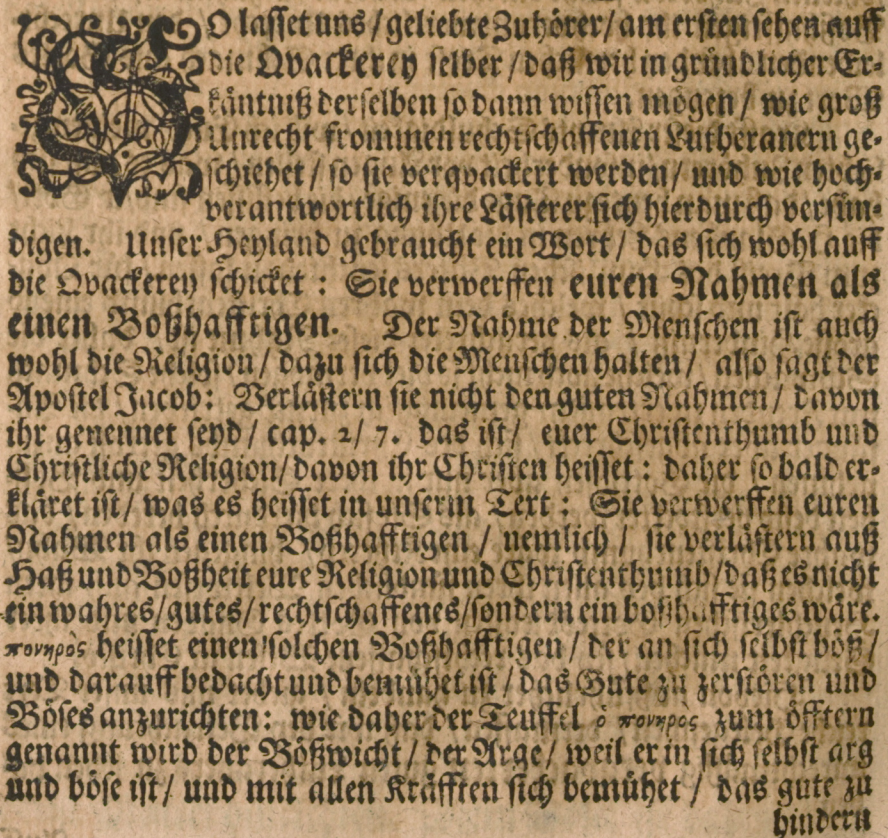 SO lasset uns / geliebte Zuhörer / am ersten sehen auff
die Qvackerey selber / daß wir in gründlicher Er-
käntniß derselben so dann wissen mögen / wie groß
Unrecht frommen rechtschaffenen Lutheranern ge-
schiehet / so sie verqvackert werden / und wie hoch-
verantwortlich ihre Lästerer sich hierdurch versün-
digen. Unser Heyland gebraucht ein Wort / das sich wohl auff
die Qvackerey schicket : Sie verwerffen euren Nahmen als
einen Boßhafftigen. Der Nahme der Menschen ist auch
wohl die Religion / dazu sich die Menschen halten / also sagt der
Apostel Jacob: Verlästern sie nicht den guten Nahmen / davon
ihr genennet seyd / cap. 2 / 7. das ist / euer Christenthumb und
Christliche Religion / davon ihr Christen heisset : daher so bald er-
kläret ist / was es heisset in unserm Text : Sie verwerffen euren
Nahmen als einen Boßhafftigen / nemlich / sie verlästern auß
Haß und Boßheit eure Religion und Christenthumb / daß es nicht
ein wahres / gutes / rechtschaffenes / sondern ein boßhafftiges wäre.
πονηρὸς heisset einen solchen Boßhafftigen / der an sich selbst böß /
und darauff bedacht und bemühet ist / das Gute zu zerstören und
Böses anzurichten: wie daher der Teuffel ὁ πονηρὸς zum öfftern
genannt wird der Bößwicht / der Arge / weil er in sich selbst arg
und böse ist / und mit allen Kräfften sich bemühet / das gute zu
hindern